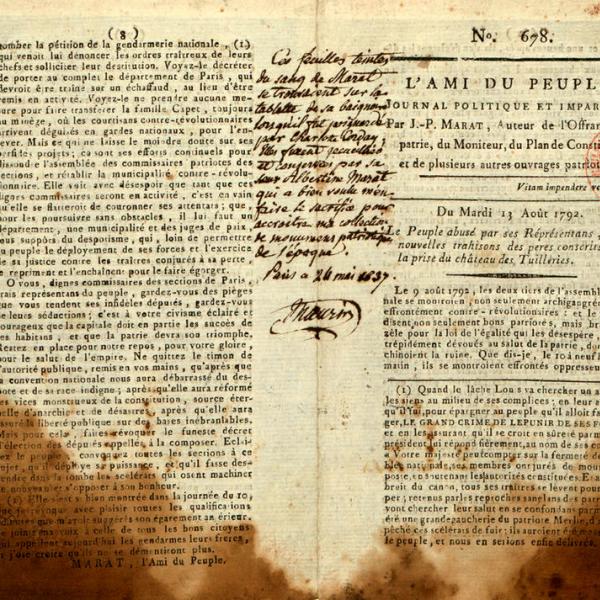 ( 8 )
tomber la pétition de la gendarmerie nationale, (1)
qui venoit lui dénoncer les ordres traîtreux de leurs
chefs et solliciter leur destitution. Voyez-le décréter
de porter au complet le département de Paris, qui
devroit être traîné sur un échaffaud, au lieu d'être
remis en activité. Voyez-le ne prendre aucune me-
sure pour faire transférer la famille Capet, toujours
au manège, où les courtisans contre-révolutionnaires
arrivent déguisés en gardes nationaux, pour l'en-
lever. Mais ce qui ne laisse le moindre doute sur ses
perfides projets; ce sont ses efforts continuels pour
dissoudre l'assemblée des commissaires patriotes des
sections, et rétablir la municipalité contre-révolu-
tionnaire. Elle voit avec désespoir que tant que ces
dignes commissaires seront en activité, c'est en vain
qu'elle se flatteroit de couronner ses attentats; que
pour les poursuivre sans obstacles, il lui faut un
département, une municipalité et des juges de paix,
tous suppôts du despotisme, qui, loin de permettre
au peuple le déployement de ses forces et l'exercice
de sa justice contre les traîtres conjurés à sa perte
le repriment et l'enchaînent pour le faire égorger.
O vous, dignes commissaires des sections de Paris,
vrais représentans du peuple, gardez-vous des pièges
que vous tendent ses infidèles députés, gardez-vous
de leurs séductions; c'est à votre civisme éclairé et
courageux que la capitale doit en partie les succès de
ses habitans, et que la patrie devra son triomphe.
Restez en place pour notre repos, pour votre gloire,
pour le salut de l'empire. Ne quittez le timon de
l'autorité publique, remis en vos mains, qu'après que
la convention nationale nous aura débarrassé du des-
pote et de sa race indigne; après qu'elle aura réformé
les vices monstrueux de la constitution, source éter-
nelle d'anarchie et de désastres; après qu'elle aura
assuré la liberté publique sur des bases inébranlables.
Mais pour cela, faites révoquer le funeste décret
d'élection des appellés à la composer. Eclai-
rez le peuple convoquez toutes les sections à ce
sujet, qu'il déploye sa puissance, et qu'il fasse des-
cendre dans la tombe les scélérats qui osent machiner
s'opposer à son bonheur.
(1) Elle s'est si bien montrée dans la journée du 10,
que je révoque avec plaisir toutes les qualifications
que m'avoit suggérés son égarement antérieur.
Je joins ma voix à celle de tous les bons citoyens
qui appellent aujourd'hui les gendarmes leurs frères,
et j'ose croire qu'ils ne se démentiront plus.
MARAT, l'Ami du Peuple.
Ces feuilles teintes
du sang de Marat
se trouvaient sur la
tablette de sa baignoire
lorsqu'il fut poignardé
par Charlotte Corday;
elles furent recueillies
et conservées par sa
sœur Albertine Marat
qui a bien voulu m'en
faire le sacrifice pour
accroître ma collection
de monumens patriotiques
de l'époque.
Paris ce 24 mai 1837.
Maurin
No. 678.
L'AMI DU PEUPLE
JOURNAL POLITIQUE ET IMPAR
Par J.-P. MARAT, Auteur de l'Offran
patrie, du Moniteur, du Plan de Consti
et de plusieurs autres ouvrages patriot
Vitam impendere ve
Du Mardi 13 Août 1792.
Le Peuple abusé par ses Réprésentans,
nouvelles trahisons des peres conscrits
la prise du château des Tuilleries.
Le 9 août 1792, les deux tiers de l'assemblé
nale se montroient, non seulement archigangréné
effrontément contre-révolutionnaires: et le
disent, non seulement bons parfois, mais brû
zèle pour la loi de l'égalité des
répidement dévoués au salut de la patrie, do
chinoient la ruine. Que dis-je, le 10 à neuf h
matin, ils se montroient effrontés oppresseur
(1) Quand le lâche Louis va chercher un a
les siens au milieu de ses complices; en leur a
qu'il, pour épargner au peuple qu'il alloit fa
ger, LE GRAND CRIME DE LEPUNIR DE SES FO
et en les assurant qu'il se croit en sûreté parm
président lui répond fièrement, au nom de ses co
votre majesté peut compter sur la fermeté de
blée nationale, ses membres ont jurés de mou
poste, en soutenant les autorités constituées. Et a
bruit du canon, tous ses traîtres se lèvent pour
per; retenus par les reproches sanglans des patr
vont chercher leur salut en se confondant parm
été une grande gaucherie du patriote Merlin, d
pêché ces scélérats de fuir; ils auroient été
le peuple, et nous en serions enfin délivrés.